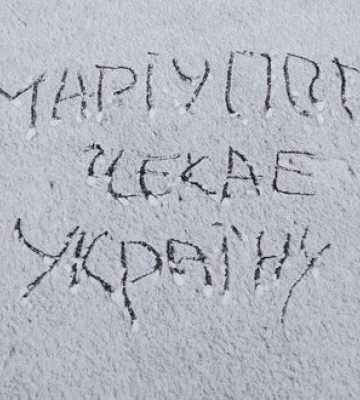 МАРІУПОЛ
ЧЕКАЕ
УКРАЇНУ